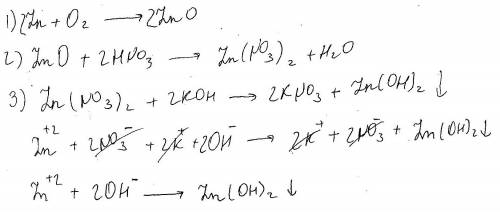 1) 2Zn + O₂ ⟶ 2ZnO
2) ZnO + 2HNO₃ ⟶ Zn(NO₃)₂ + H₂O
3) Zn(NO₃)₂ + 2KOH ⟶ 2KNO₃ + Zn(OH)₂ ↓
Zn⁺² + 2NO₃⁻ + 2K⁺ + 2OH⁻ ⟶ 2K⁺ + 2NO₃⁻ + Zn(OH)₂ ↓
Zn⁺² + 2OH⁻ ⟶ Zn(OH)₂ ↓